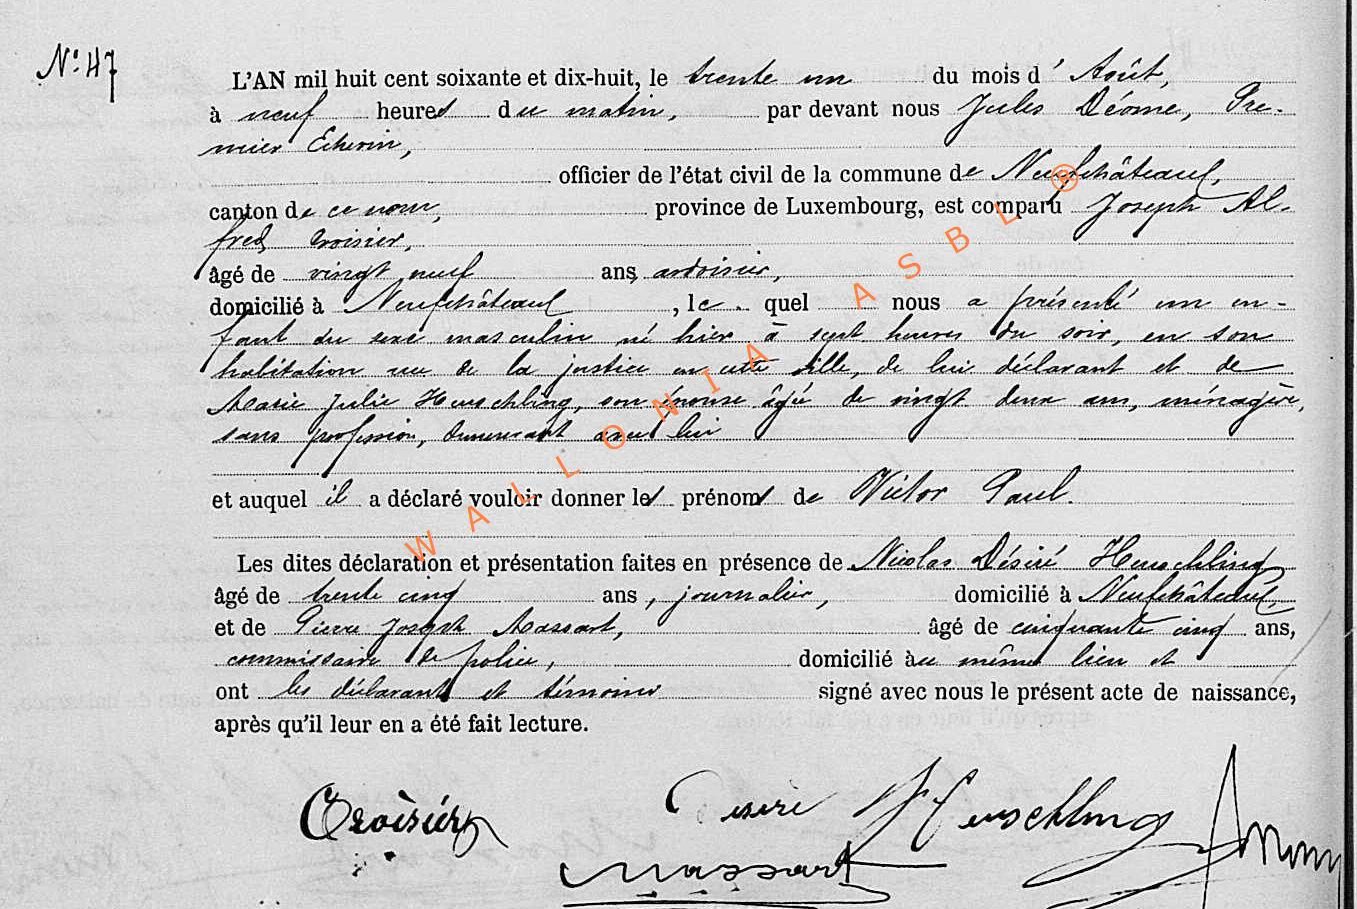 N° 47
L'AN mil huit cent soixante et dix-huit, le trente un du mois d'Août,
à neuf heures du matin, par devant nous Jules Déome, Pre-
mier Echevin,
officier de l'état civil de la commune de Neufchâteau,
canton de ce nom, province de Luxembourg, est comparu Joseph Al-
fred Croisier,
âgé de vingt neuf ans, ardoisier,
domicilié à Neufchâteau, le quel nous a présenté un en-
fant du sexe masculin, né hier à sept heures du soir, en son
habitation rue de la justice en cette ville, de lui déclarant et de
Marie Julie Heuschling, son épouse âgée de vingt deux ans, ménagère,
sans profession, demeurant avec lui
et auquel il a déclaré vouloir donner les prénoms de Victor Paul.
Les dites déclaration et présentation faites en présence de Nicolas Désiré Heuschling
âgé de trente cinq ans, journalier, domicilié à Neufchâteau,
et de Pierre Joseph Massart, âgé de cinquante cinq ans,
commissaire de police, domicilié au même lieu et
ont les déclarant et témoins signé avec nous le présent acte de naissance,
après qu'il leur en a été fait lecture.
Croisier Desiré Heuschling
Massart
WALLONIA ASBL ®